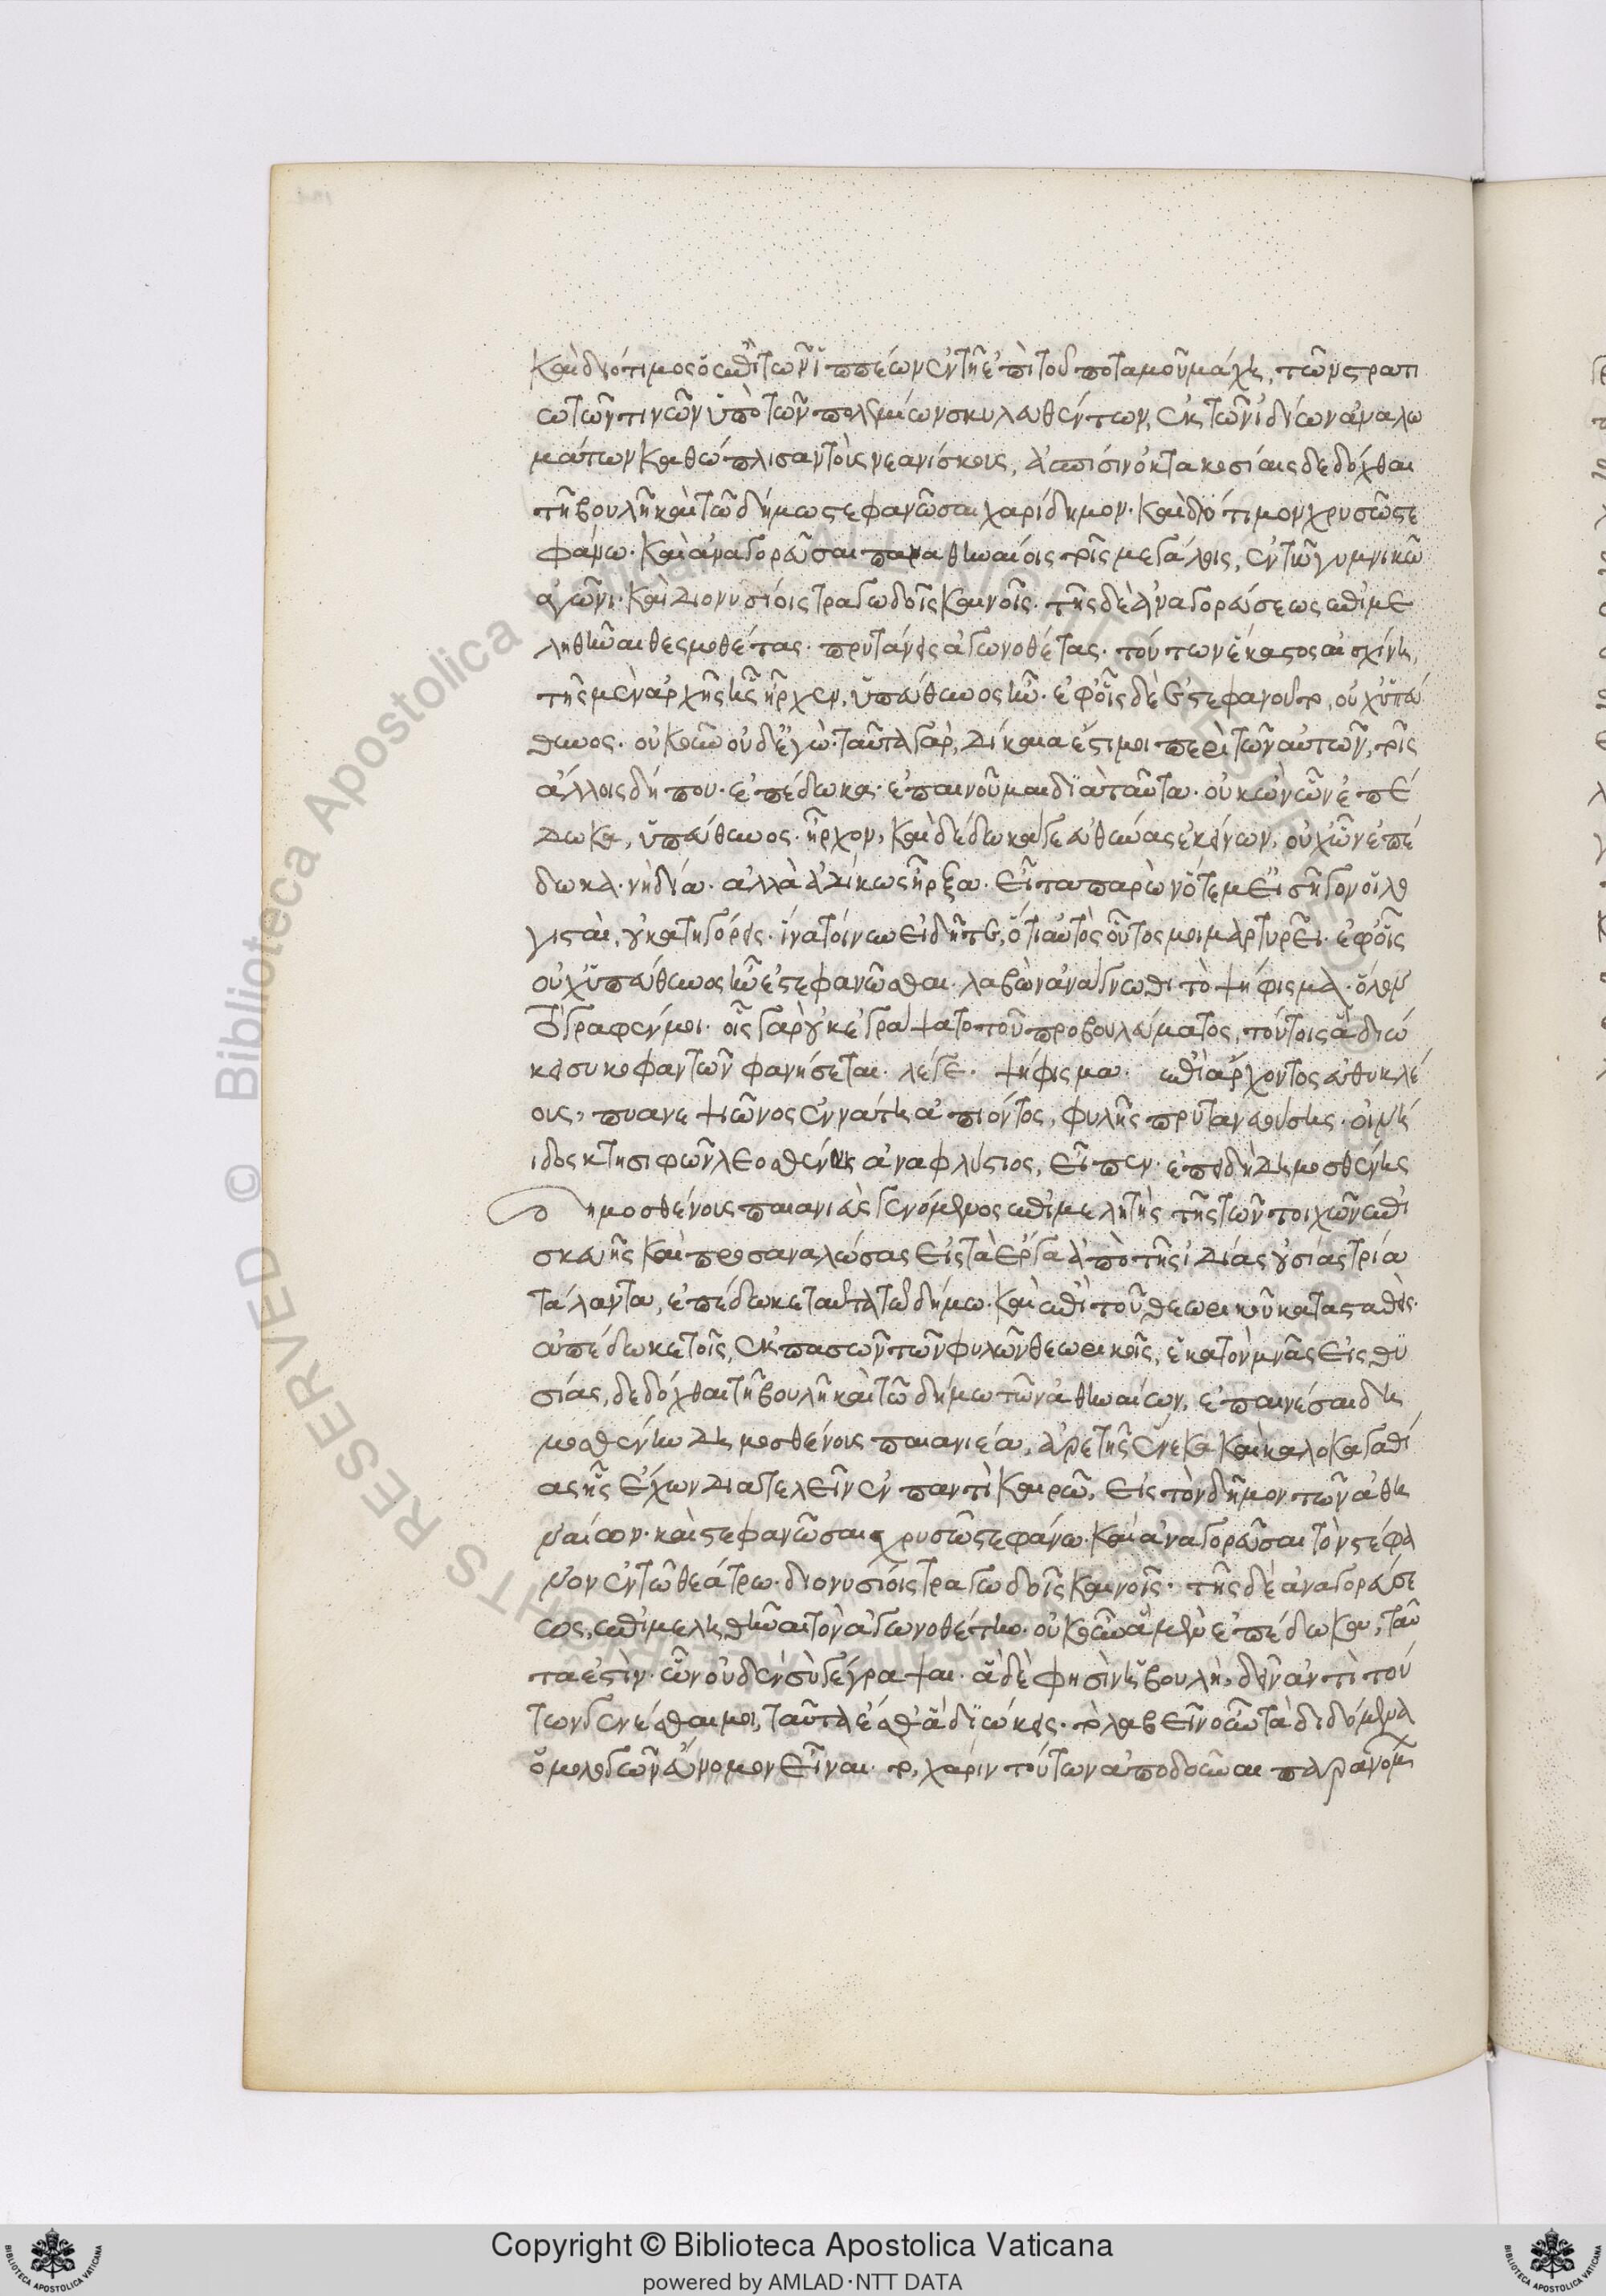 καὶ διότιμος ὁ ἐπὶ τῶν ἱππέων ἐν τῇ ἐπὶ τοῦ ποταμοῦ μάχῃ, τῶν στρατι
ωτῶν τινῶν ὑπὸ τῶν πολεμίων σκυλευθέντων, ἐκ τῶν ἰδίων ἀναλω
μάτων καθώπλισαν τοὺς νεανίσκους, ἀσπίσιν ὀκτακοσίαις δεδόχθαι
τῇ βουλῇ καὶ τῶ δήμω στεφανῶσαι χαρίδημον· καὶ διότιμον χρυσῶ στε
φάνω· καὶ ἀναγορεῦσαι παναθηναίοις τοῖς μεγάλοις, ἐν τῶ γυμνικῶ
ἀγῶνι· καὶ διονυσίοις τραγωδοῖς καινοῖς· τῆς δὲ ἀναγορεύσεως ἐπιμε
ληθῆναι θεσμοθέτας· πρυτάνεις ἀγωνοθέτας· τούτων ἕκαστος αἰσχίνη,
τῆς μὲν ἀρχῆς ἧς ἦρχεν, ὑπεύθυνος ἦν· ἐφ' οἷς δὲ ἐστεφανοῦτο, οὐχ ὑπεύ
θυνος· οὐκοῦν οὐδ' ἐγώ· ταῦτα γὰρ, δίκαια ἐστί μοι περὶ τῶν αὐτῶν, τοῖς
ἄλλοις δήπου· ἐπέδωκα· ἐπαινοῦμαι διὰ ταῦτα· οὐκ ὢν ὧν ἐπέ
δωκα, ὑπεύθυνος· ἦρχον, καὶ δέδωκά γε εὐθύνας ἐκείνων, οὐχ ὧν ἐπέ
δωκα· νὴ δία· ἀλλὰ ἀδίκως ἦρξα· εἶτα παρὼν ὅτε μ' εἰσῆγον οἱ λο
γισταὶ, οὐ κατηγόρεις· ἵνα τοίνυν εἰδῆτε, ὅτι αὐτὸς οὗτος μοι μαρτυρεῖ· ἐφ' οἷς
οὐχ ὑπεύθυνος ἦν ἐστεφανῶσθαι· λαβὼν ἀνάγνωθι τὸ ψήφισμα· ὅλον
τὸ γραφέν μοι· οἷς γὰρ οὐκ ἐγράψατο τοῦ προβουλεύματος, τούτοις ἃ διώ
κει συκοφαντῶν φανήσεται· λέγε· ψήφισμα· ἐπὶ ἄρχοντος εὐθυκλέ
ους, πυανεψιῶνος ἐννάτη ἀπιόντος, φυλῆς πρυτανευούσης· οἰνηί
ιδος κτησιφῶν λεοσθένους ἀναφλύστιος, εἶπεν· ἐπειδὴ δημοσθένης
δημοσθένους παιανιεὺς γενόμενος ἐπιμελητὴς τῆς τῶν τοιχῶν ἐπι
σκευῆς καὶ προσαναλώσας εἰς τὰ ἔργα ἀπὸ τῆς ἰδίας οὐσίας τρία
τάλαντα, ἐπέδωκε ταῦτα τῶ δήμω· καὶ ἐπὶ τοῦ θεωρικοῦ κατασταθεὶς·
ἀπέδωκε τοῖς, ἐκ πασῶν τῶν φυλῶν θεωρικοῖς, ἑκατὸν μνᾶς εἰς θυ
σίας, δεδόχθαι τῇ βουλῇ καὶ τῶ δήμω τῶν ἀθηναίων, ἐπαινέσαι δη
μοσθένην δημοσθένους παιανιέα, ἀρετῆς ἕνεκα καὶ καλοκαγαθί
ας ἧς ἔχων διατελεῖ ἐν παντὶ καιρῶ, εἰς τὸν δῆμον τῶν ἀθη
ναίων· καὶ στεφανῶσαι χρυσῶ στεφάνω· καὶ ἀναγορεῦσαι τὸν στέφα
νον ἐν τῶ θεάτρω· διονυσίοις τραγωδοῖς καινοῖς· τῆς δὲ ἀναγορεύσε
ως, ἐπιμεληθῆναι τὸν ἀγωνοθέτην· οὐκοῦν ἃ μὲν ἐπέδωκα, ταῦ
τα ἐστὶν· ὧν οὐδὲν σὺ γέγραψαι· ἃ δὲ φησὶν ἡ βουλὴ, δεῖν ἀντὶ τού
των γενέσθαι μοι, ταῦτα ἔσθ' ἃ διώκεις· τὸ λαβεῖν οὖν τὰ διδόμενα
ὁμολογῶν ἔννομον εἶναι· τὸ, χάριν τούτων ἀποδοῦναι παρανόμων